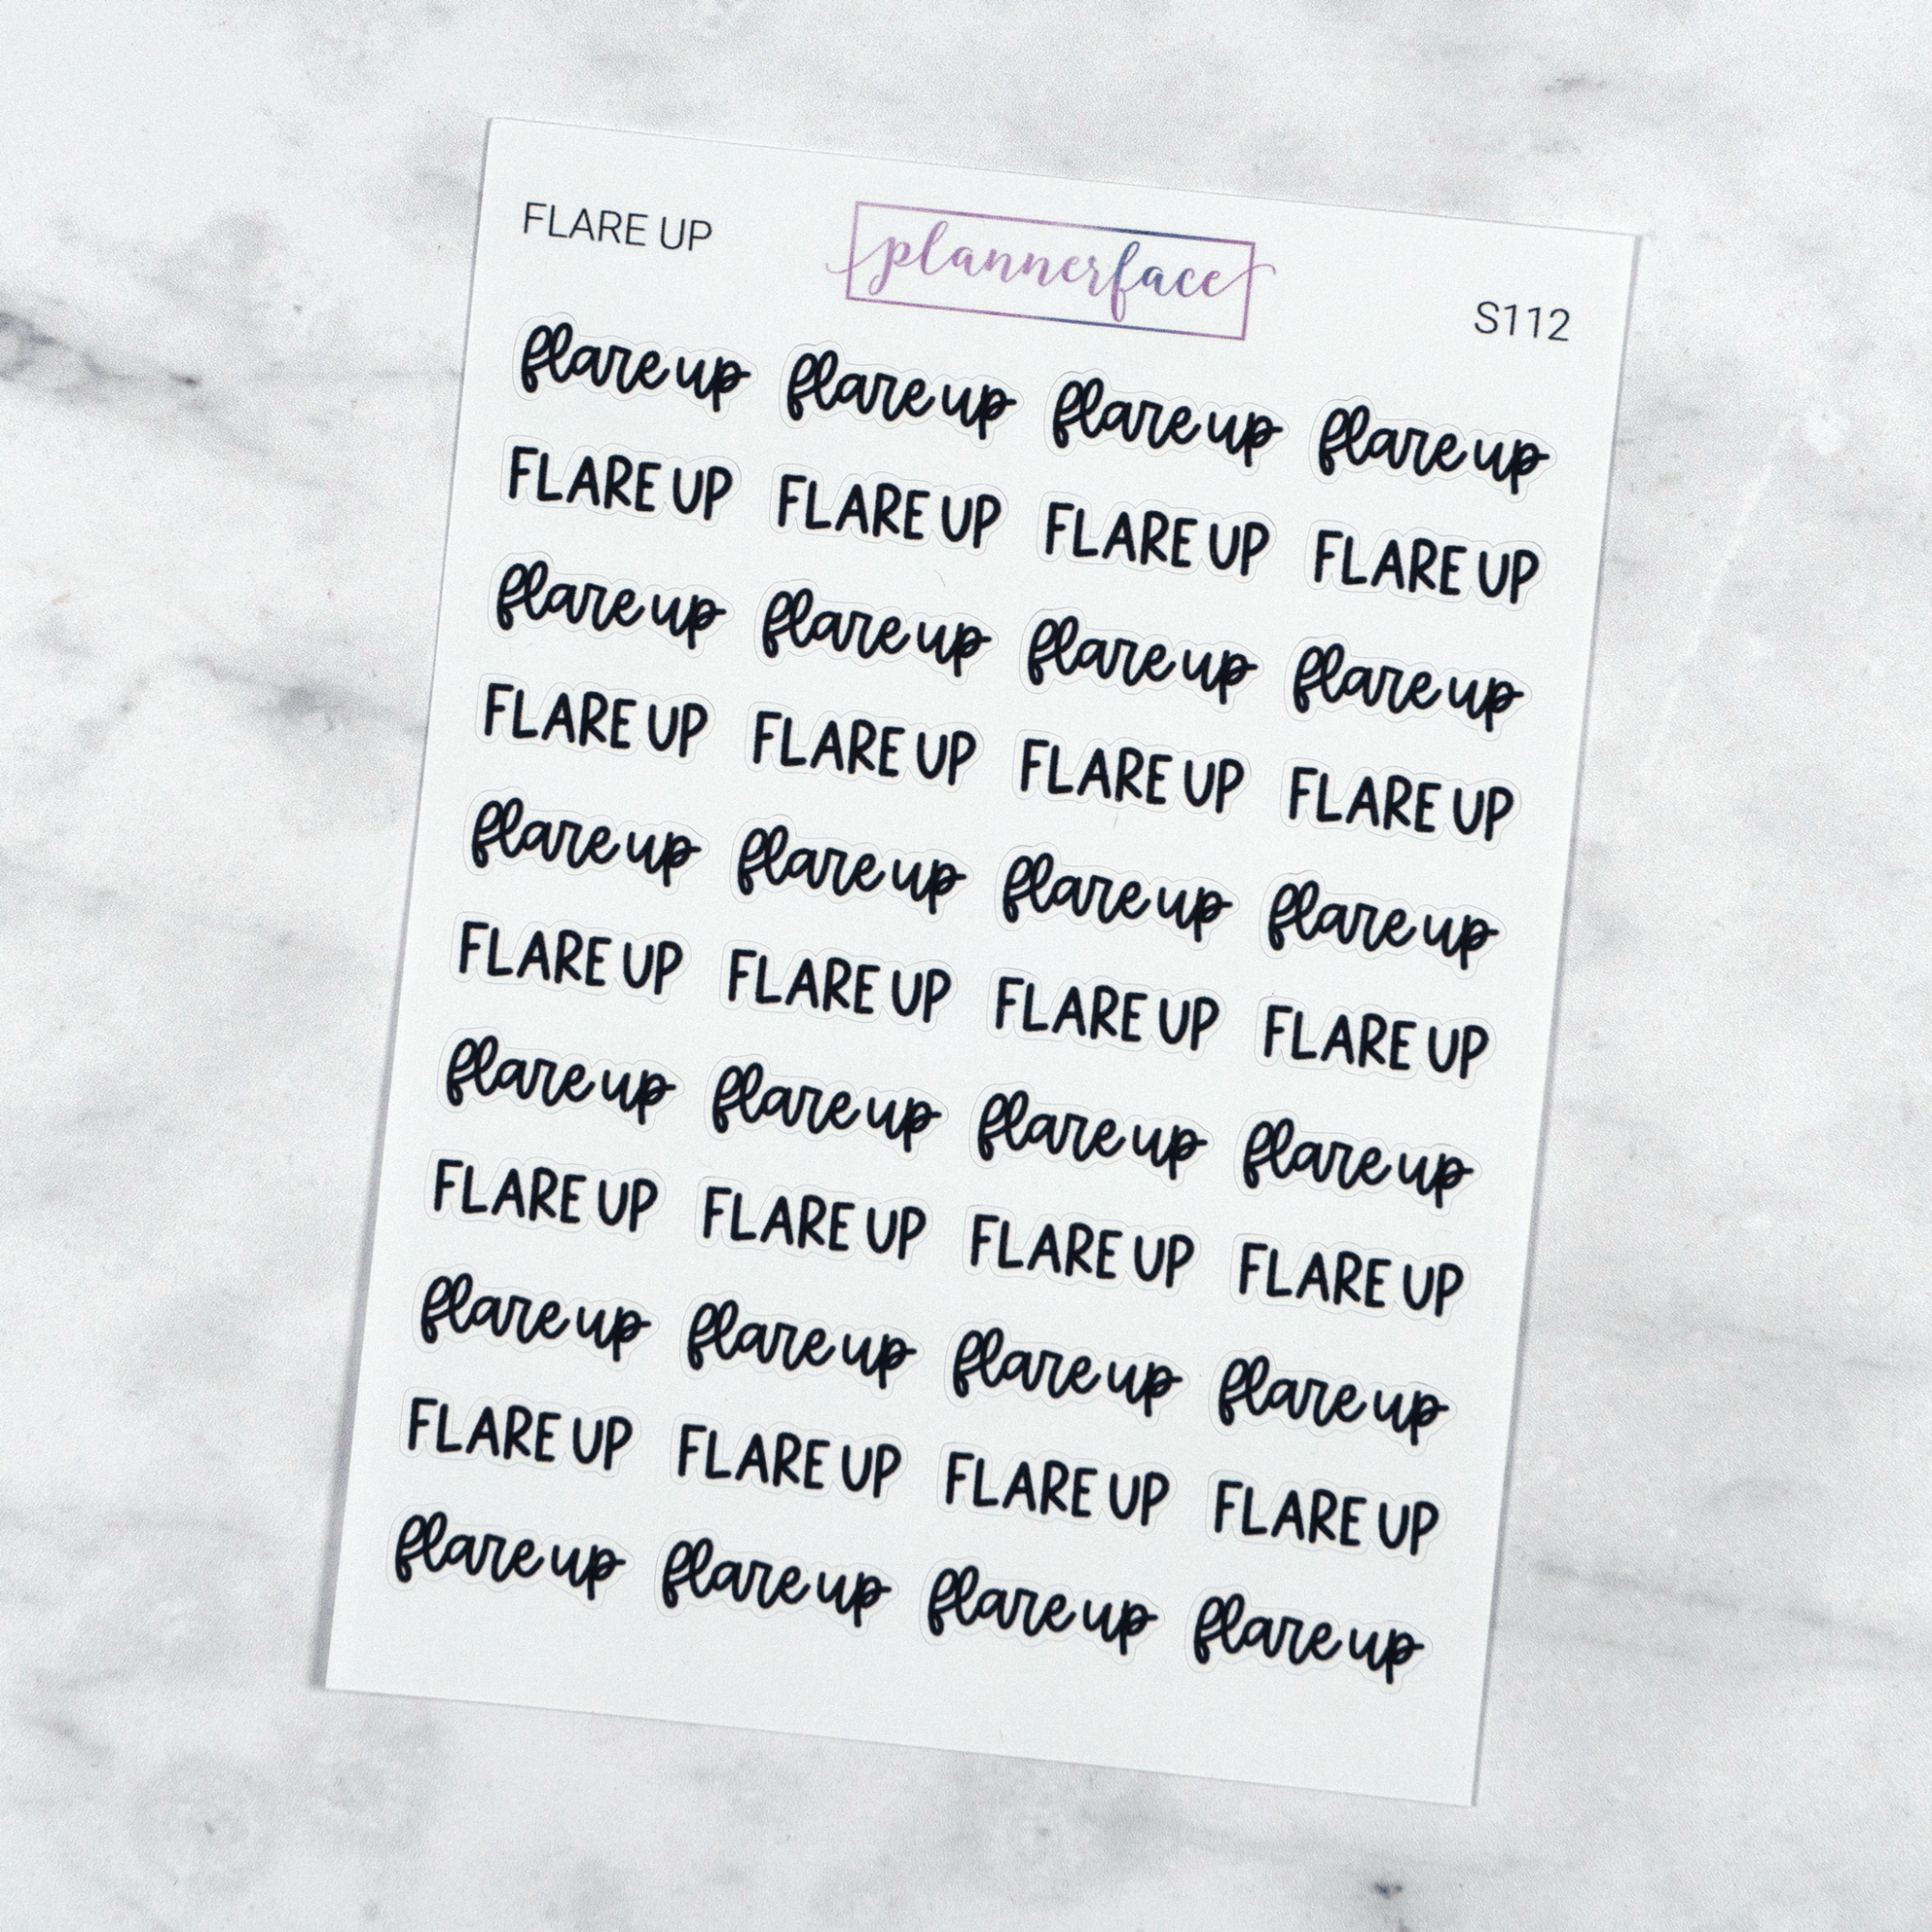 FLARE UP
plannerface
S112
flare up flare up flare up flare up
FLARE UP FLARE UP FLARE UP FLARE UP
flare up flare up flare up flare up
FLARE UP FLARE UP FLARE UP FLARE UP
flare up flare up flare up flare up
FLARE UP FLARE UP FLARE UP FLARE UP
flare up flare up flare up flare up
FLARE UP FLARE UP FLARE UP FLARE UP
flare up flare up flare up flare up
FLARE UP FLARE UP FLARE UP FLARE UP
flare up flare up flare up flare up